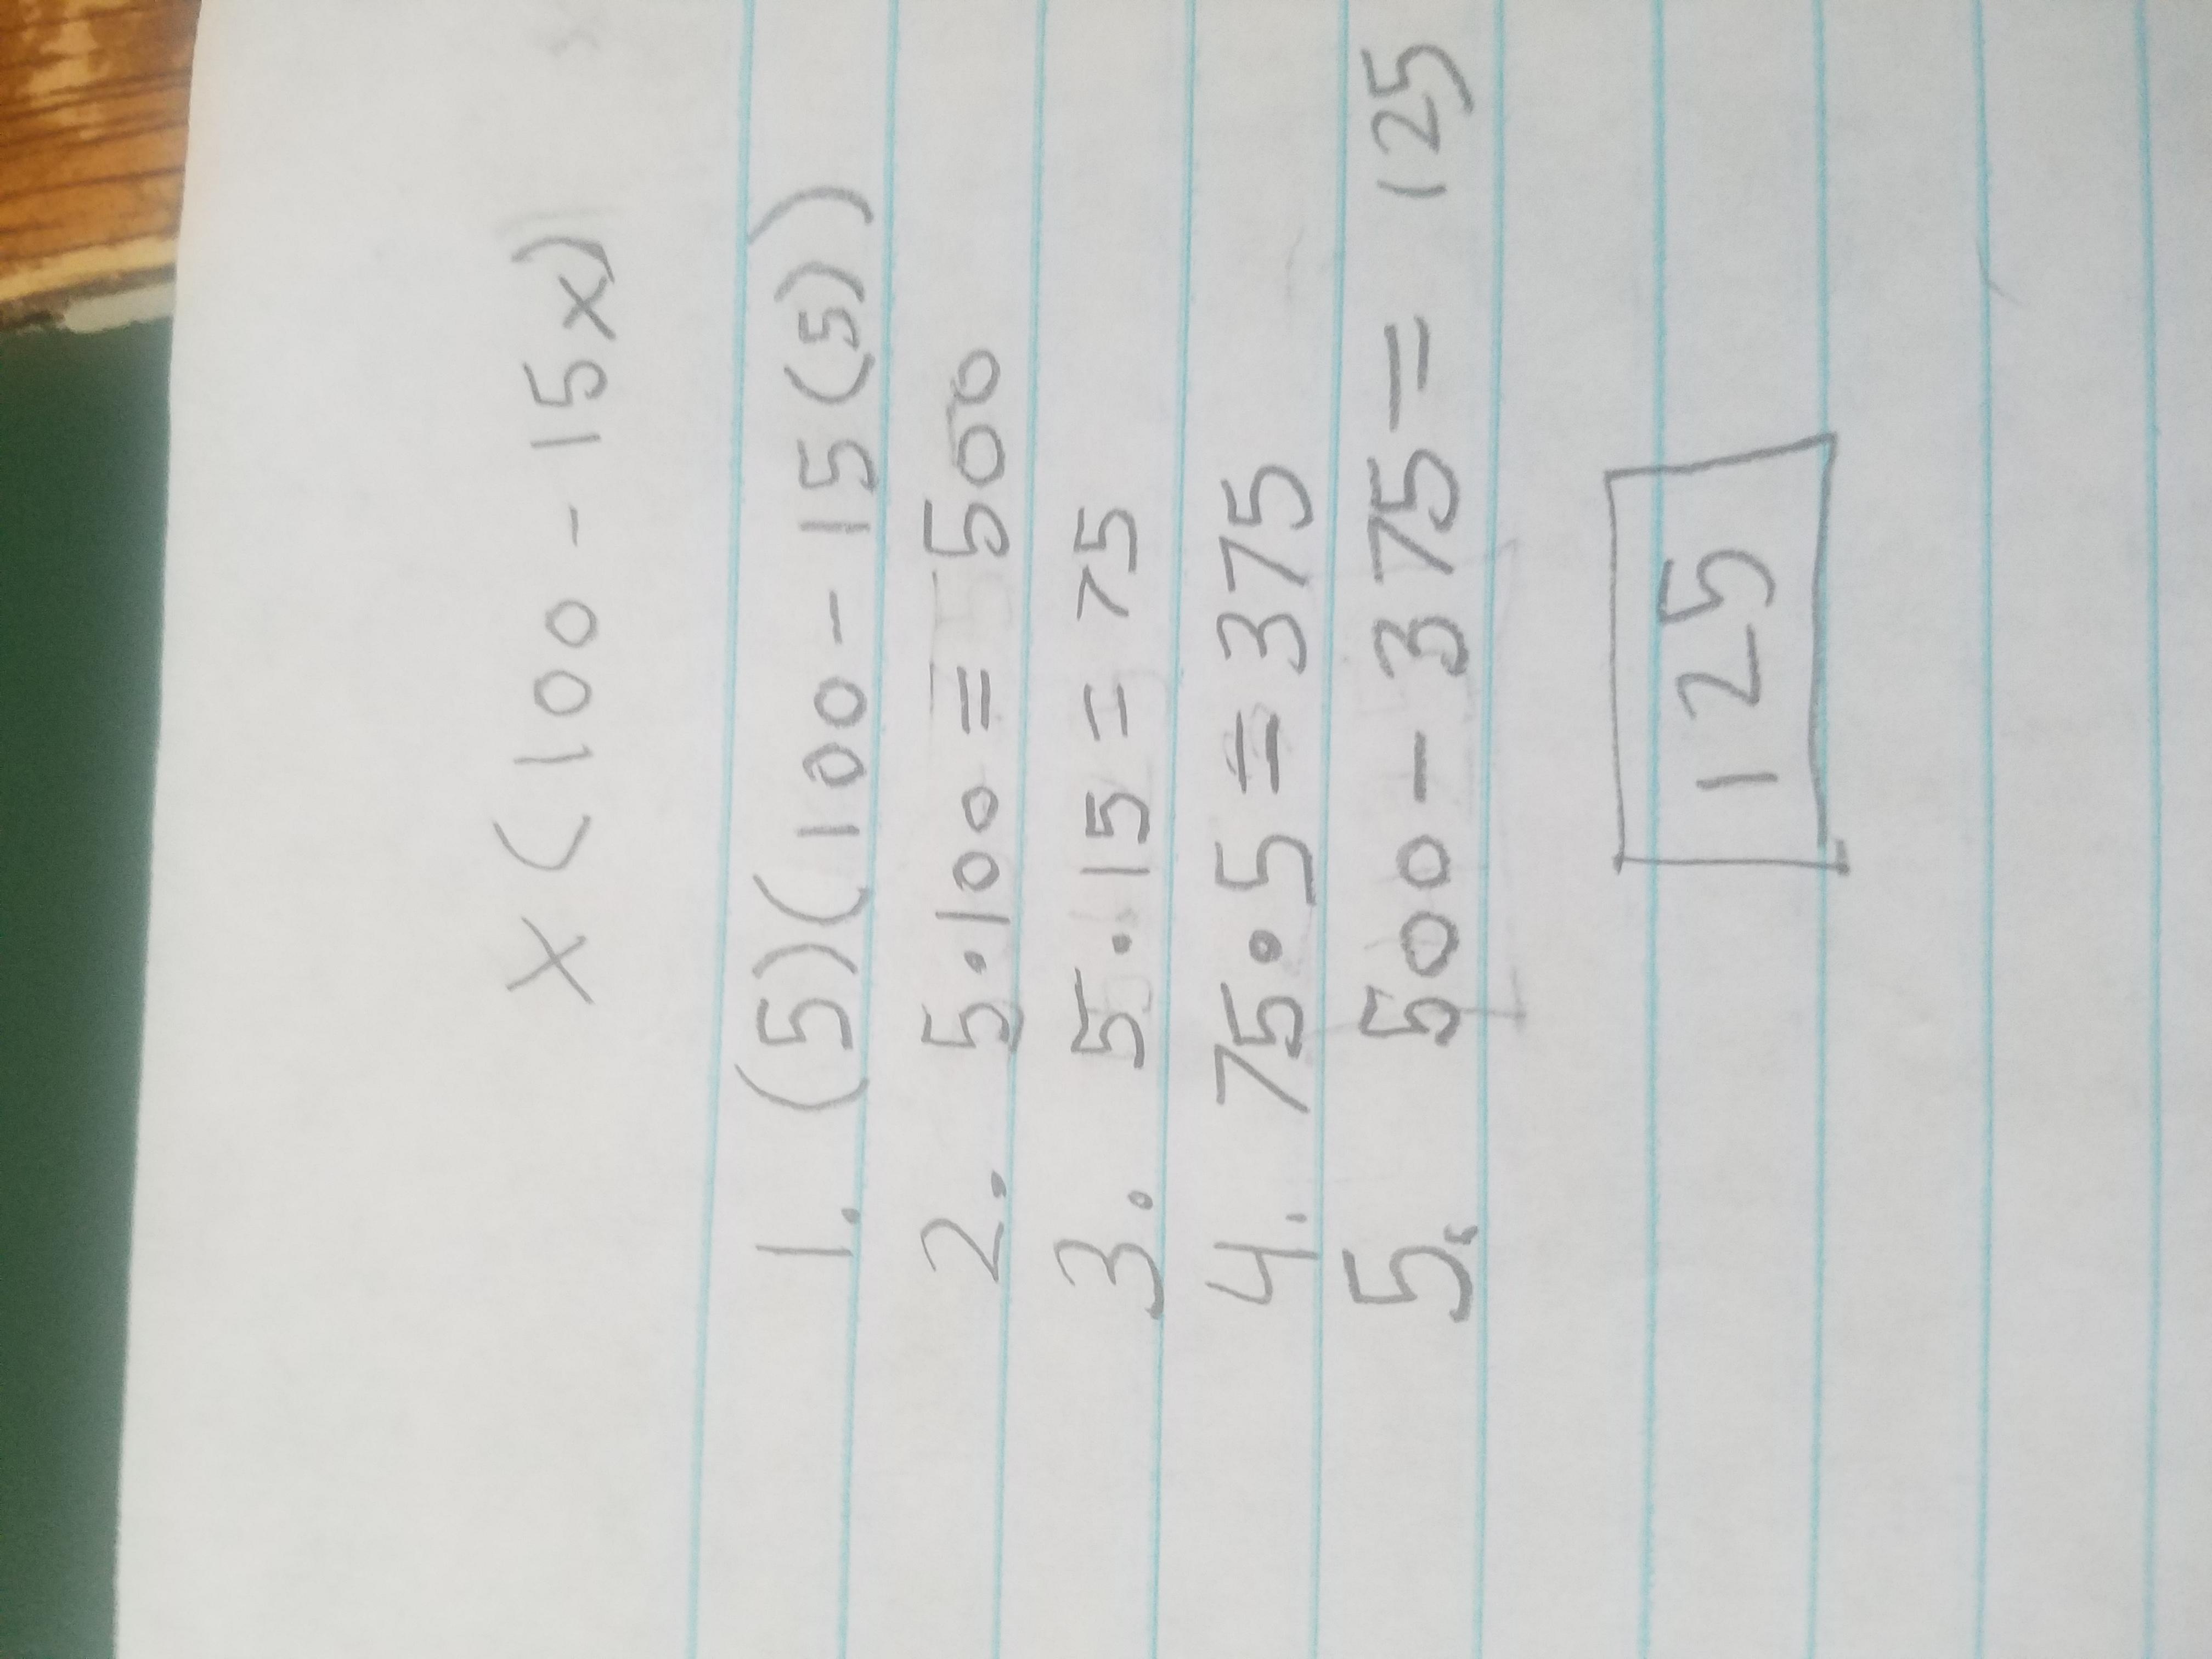 x(100-15x)
1. (5)(100-15(5))
2. 5·100=500
3. 5·15=75
4. 75·5=375
5. 500-375= 125
125